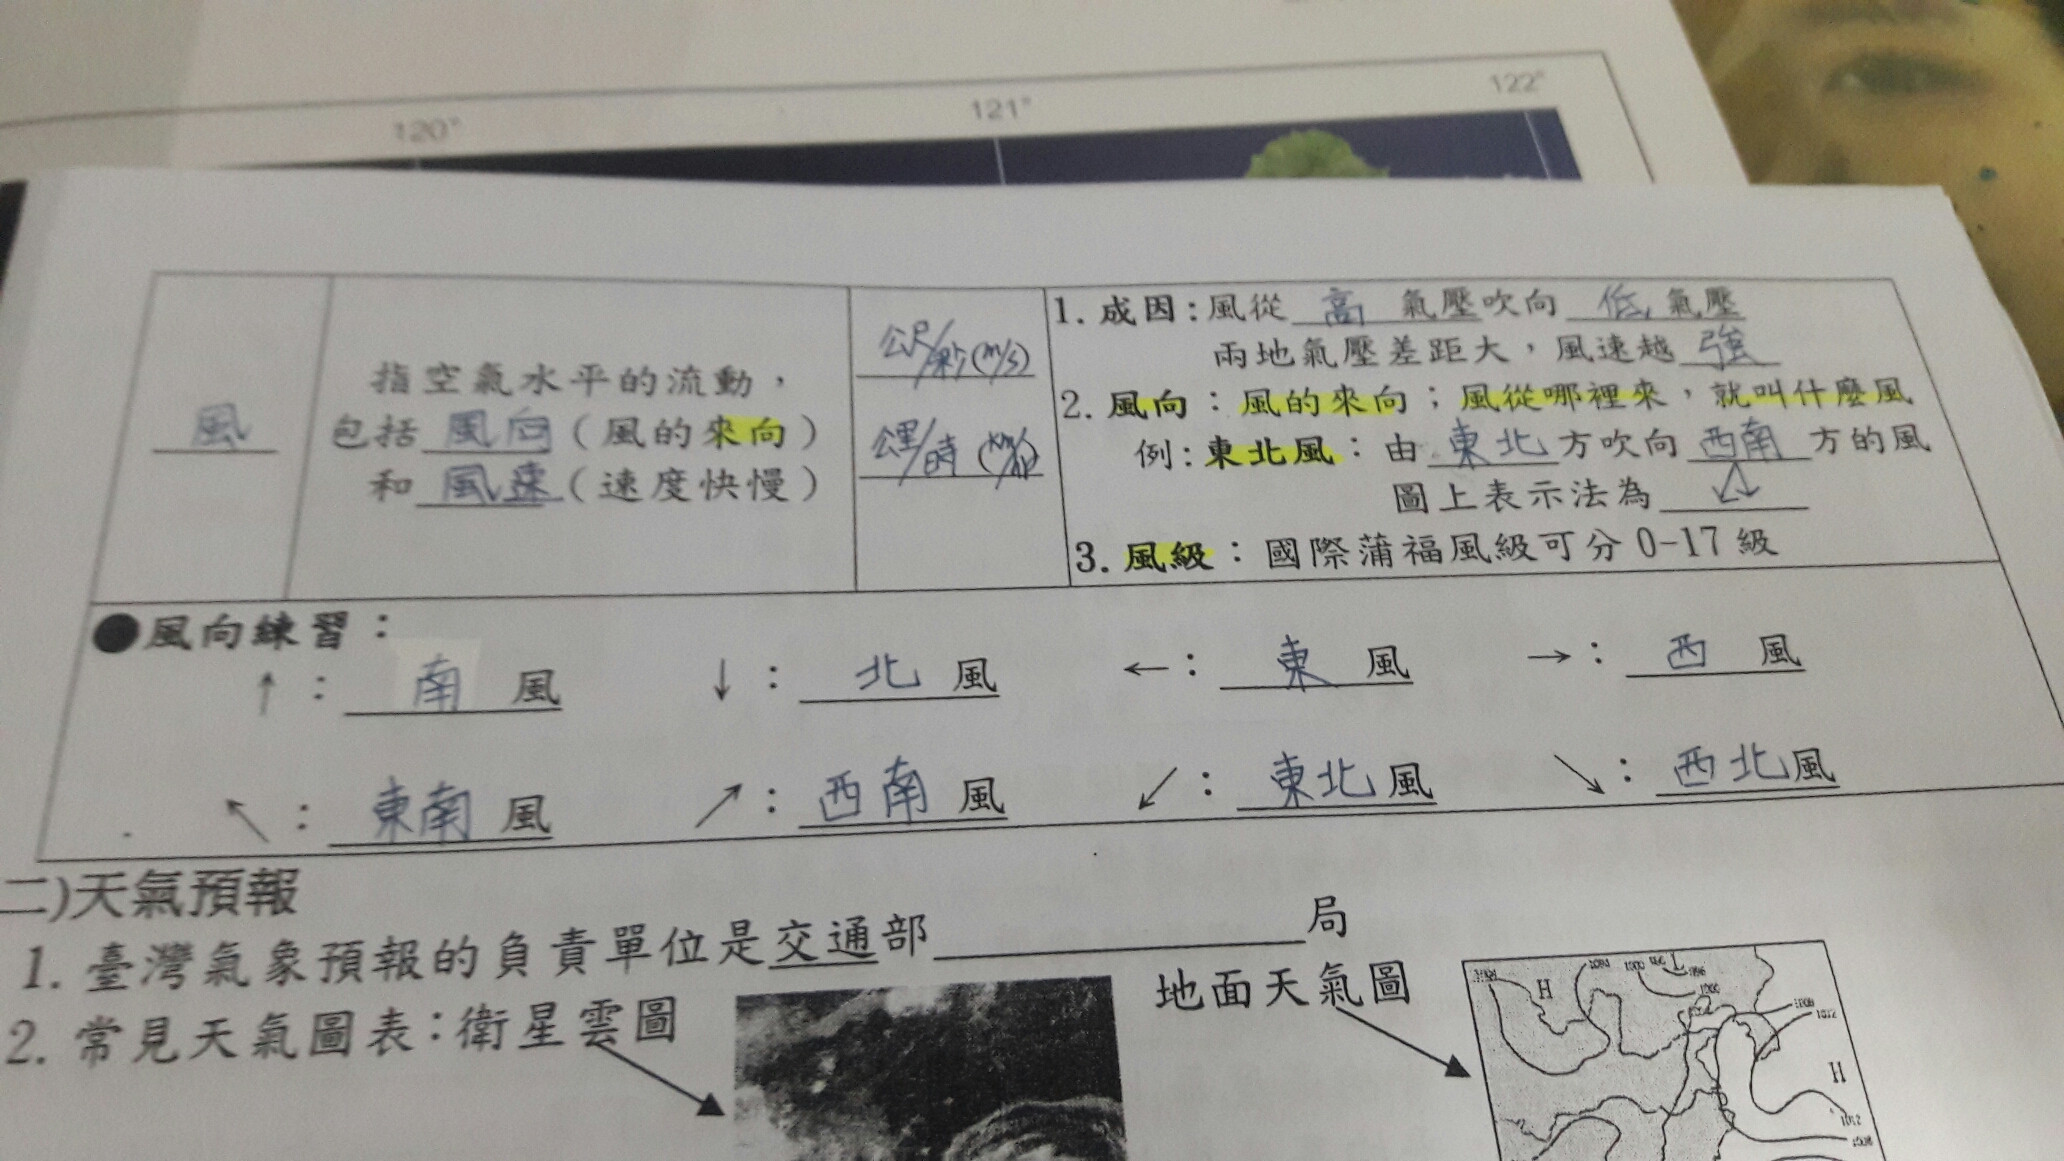 120° 121° 122°
風
指空氣水平的流動，
包括 風向（風的來向）
和 風速（速度快慢）
公尺/秒(m/s)
公里/時
1. 成因：風從 高 氣壓吹向 低 氣壓
兩地氣壓差距大，風速越 強
2. 風向：風的來向；風從哪裡來，就叫什麼風
例：東北風：由 東北 方吹向 西南 方的風
圖上表示法為 ↙
3. 風級：國際蒲福風級可分 0-17 級
●風向練習：
↑： 南 風 ↓： 北 風 ←： 東 風 →： 西 風
↖： 東南 風 ↗： 西南 風 ↙： 東北 風 ↘： 西北 風
二)天氣預報
1. 臺灣氣象預報的負責單位是交通部＿＿＿＿＿＿局
2. 常見天氣圖表：衛星雲圖
地面天氣圖
H
H
1012
1012